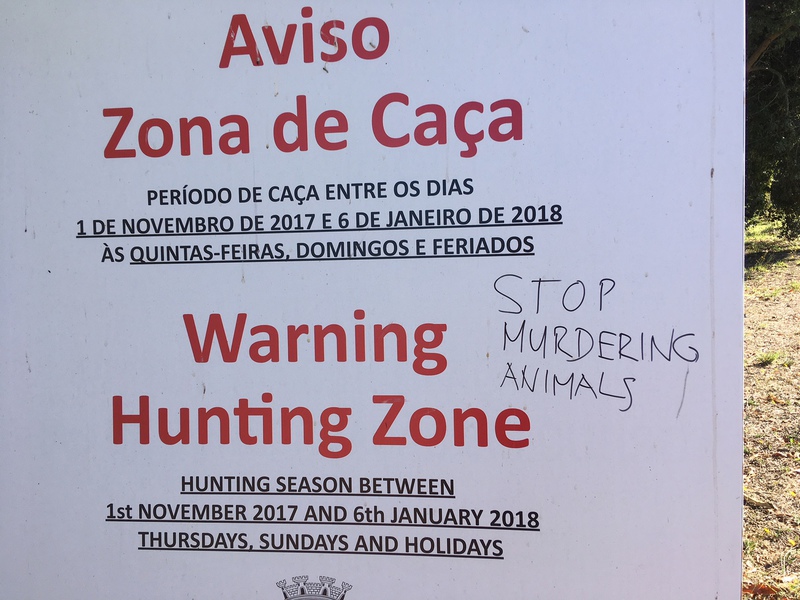 Aviso
Zona de Caça
PERÍODO DE CAÇA ENTRE OS DIAS
1 DE NOVEMBRO DE 2017 E 6 DE JANEIRO DE 2018
ÀS QUINTAS-FEIRAS, DOMINGOS E FERIADOS
STOP
MURDERING
ANIMALS
Warning
Hunting Zone
HUNTING SEASON BETWEEN
1st NOVEMBER 2017 AND 6th JANUARY 2018
THURSDAYS, SUNDAYS AND HOLIDAYS